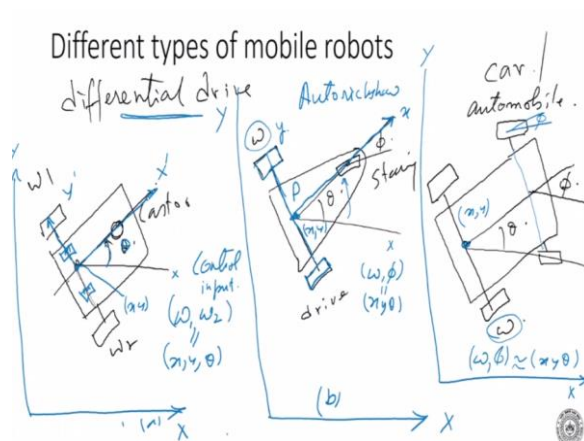 Different types of mobile robots
differential drive
Y
ω1
y'
x'
Castor
θ
x
(x,y)
ωr
Control
input
(ω, ω2)
(x, y, θ)
X
Y
Autorickshaw
ω
y
x
φ
P
θ
(x,y)
x
drive
(ω, φ)
(x y θ)
(b)
X
Y
car /
automobile.
φ
(x,y)
θ
φ
ω
(ω, φ) ≈ (x y θ)
X